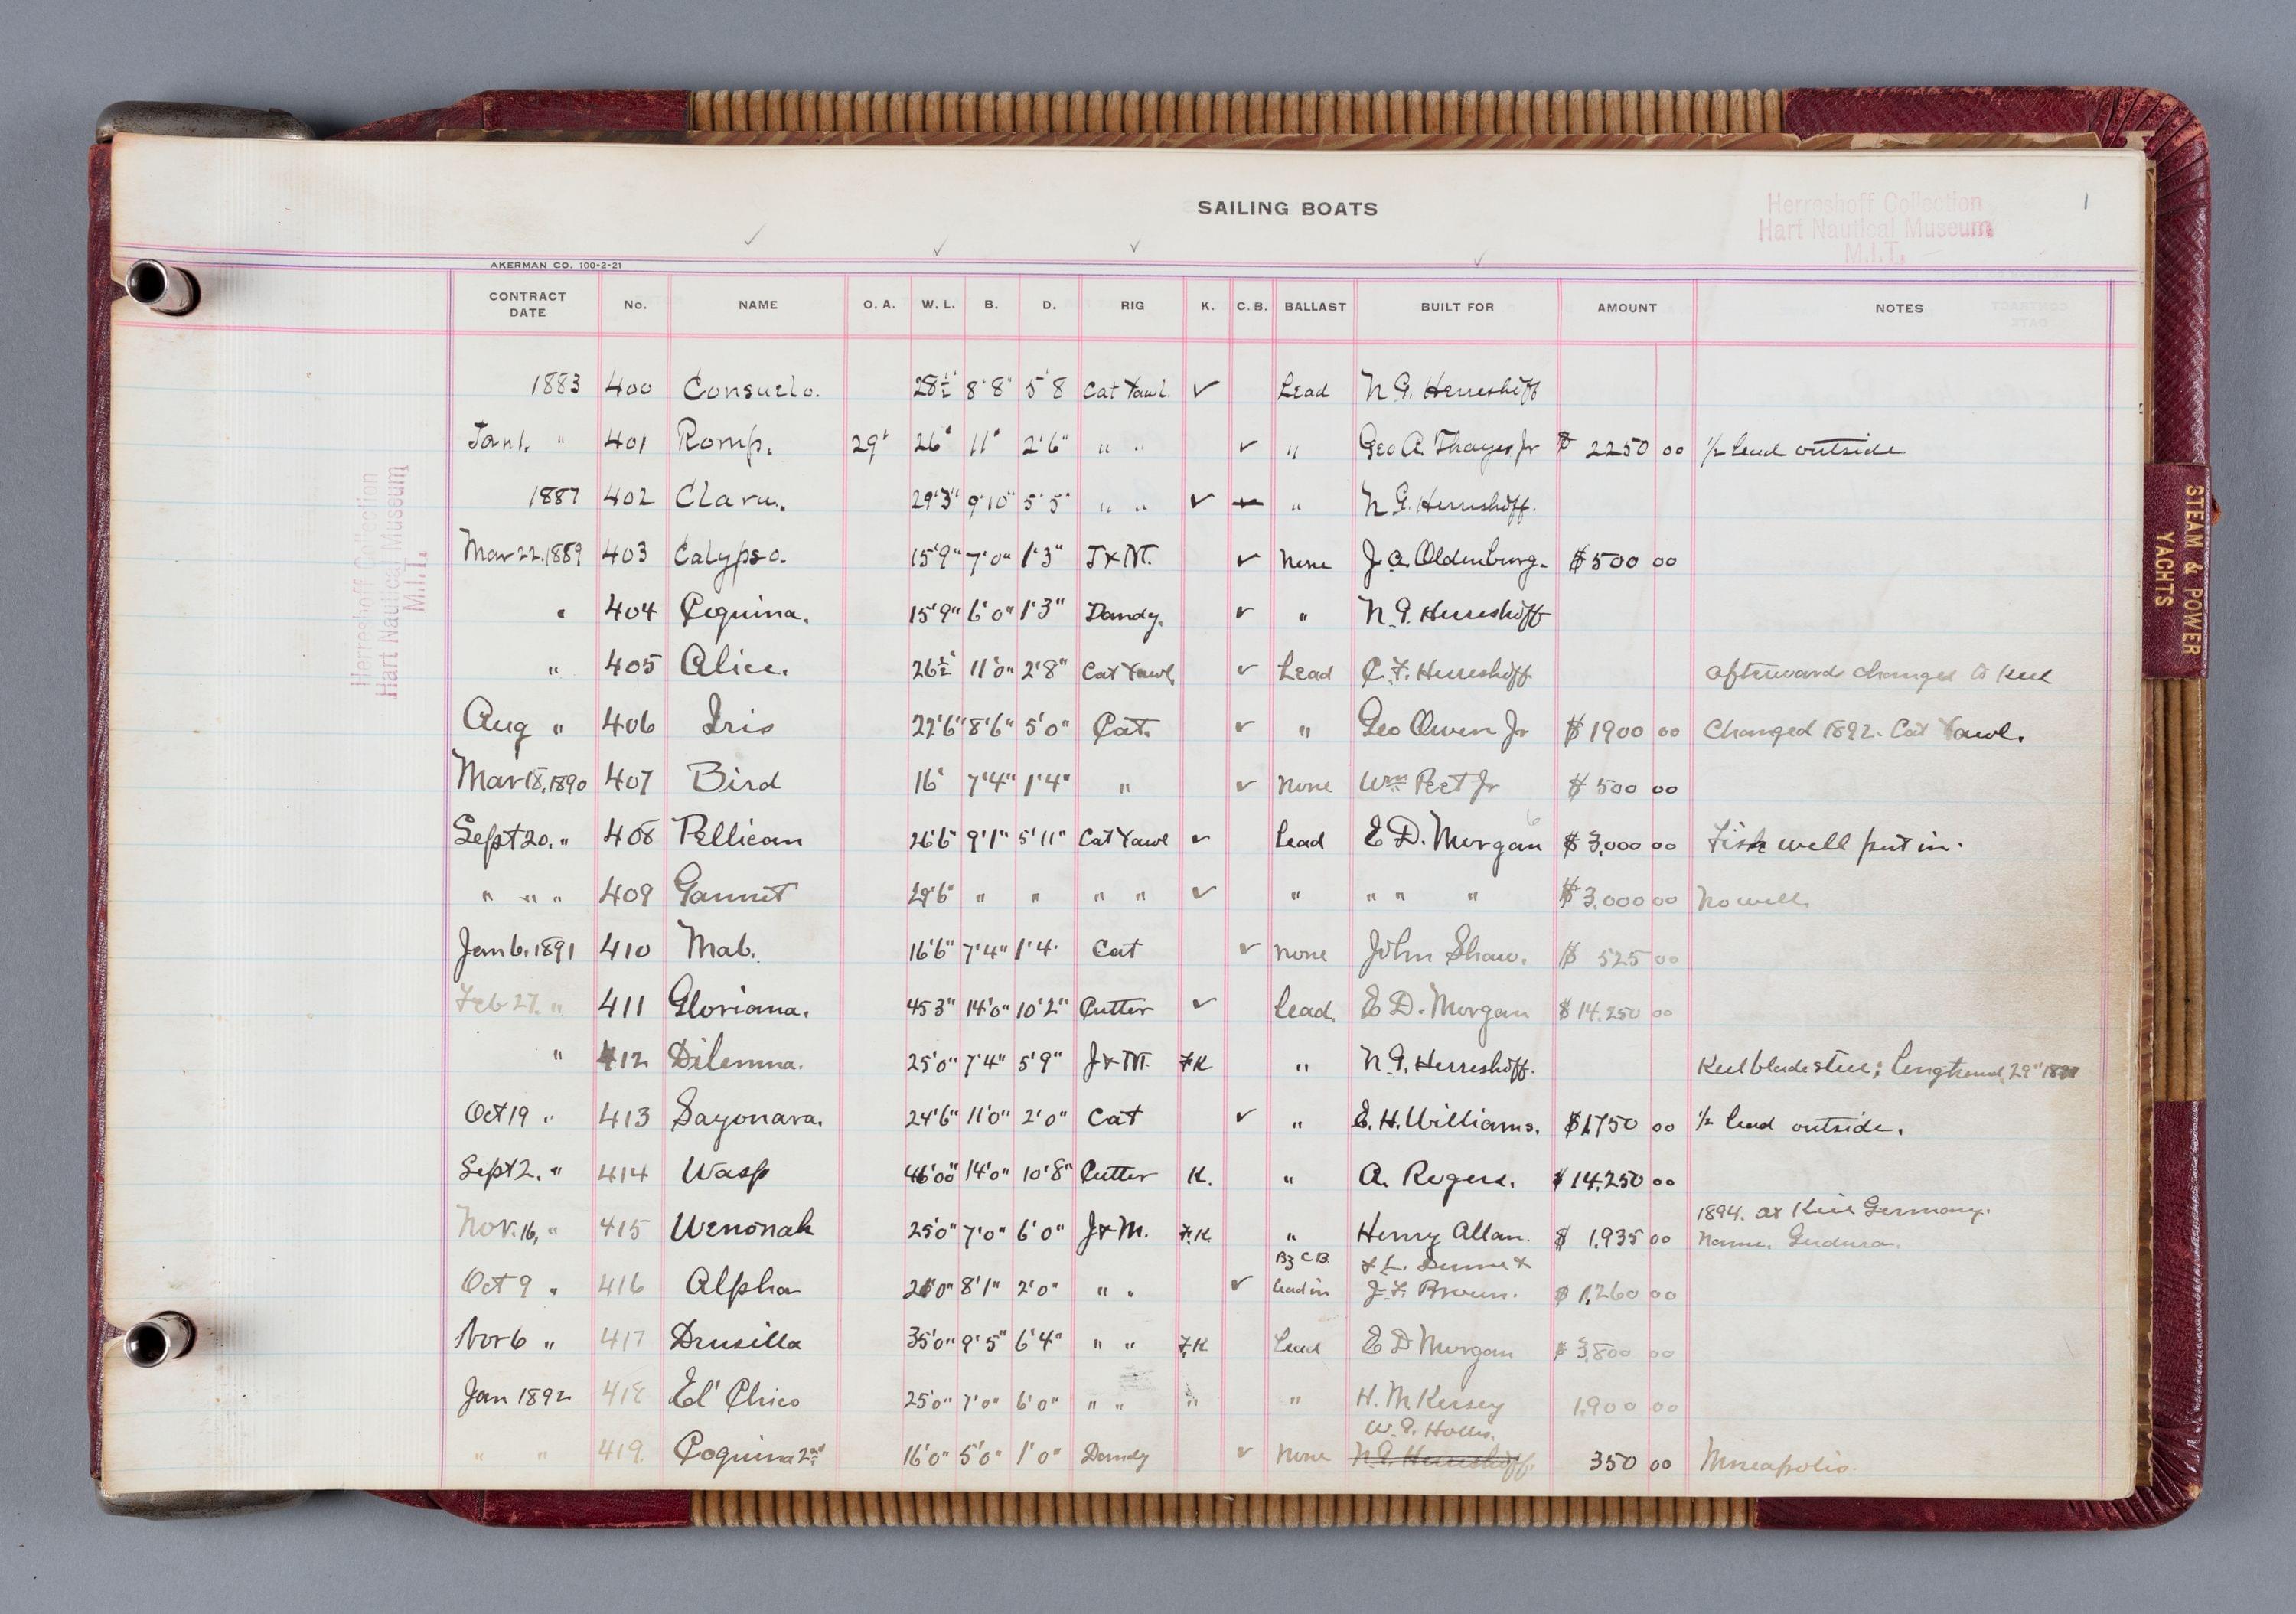 SAILING BOATS
Herreshoff Collection
Hart Nautical Museum
M.I.T.
1
AKERMAN CO. 100-2-21
CONTRACT DATE No. NAME O. A. W. L. B. D. RIG K. C. B. BALLAST BUILT FOR AMOUNT NOTES
1883 400 Consuelo. 28½' 8'8" 5'8 Cat Yawl. ✓ Lead N G. Herreshoff
Jan 1. " 401 Romp. 29' 26' 11' 2'6" " " ✓ " Geo A. Thayer Jr $ 2250 00 ½ lead outside
1887 402 Clara. 29'3" 9'10" 5'5" " " ✓ " N G. Herreshoff.
Mar 22. 1889 403 Calypso. 15'9" 7'0" 1'3" J & M. ✓ None J. A. Oldenburg. $ 500 00
" 404 Coquina. 15'9" 6'0" 1'3" Dandy. ✓ " N. G. Herreshoff
" 405 Alice. 26½' 11'0" 2'8" Cat Yawl ✓ Lead C. F. Herreshoff afterward changed to Keel
Aug " 406 Iris 22'6" 8'6" 5'0" Cat. ✓ " Geo Owen Jr $ 1900 00 Changed 1892. Cat Yawl.
Mar 18, 1890 407 Bird 16' 7'4" 1'4" " ✓ None Wm Peet Jr $ 500 00
Sept 20. " 408 Pellican 26'6" 9'1" 5'11" Cat Yawl ✓ Lead E D. Morgan $ 3,000 00 Fish well put in.
6
" " " 409 Gannet 29'6" " " " " ✓ " " " " $ 3,000 00 No well.
Jan 6. 1891 410 Mab. 16'6" 7'4" 1'4" Cat ✓ None John Shaw. $ 525 00
Feb 27. " 411 Gloriana. 45'3" 14'0" 10'2" Cutter ✓ Lead. E D. Morgan $ 14,250 00
" 412 Dilemma. 25'0" 7'4" 5'9" J & M. F.K " N. G. Herreshoff. Keel blade steel;
Oct 19 " 413 Sayonara. 24'6" 11'0" 2'0" Cat ✓ " E. H. Williams. $ 1,750 00 ½ lead outside.
Sept 2. " 414 Wasp 46'00" 14'0" 10'8" Cutter K. " A. Rogers. $ 14,250 00
1894. at Kiel Germany.
Nov. 16, " 415 Wenonah 25'0" 7'0" 6'0" J & M. F.K. " Henry Allan. $ 1,935 00 Name. Gudruna.
Bz C B.
Oct 9 " 416 Alpha 8'1" 2'0" " " ✓ Lead in J. F. Brown. $ 1,260 00
Nov 6 " 417 Drusilla 35'0" 9'5" 6'4" " " F.K Lead E D Morgan $ 3,800 00
Jan 1892 418 El Chico 25'0" 7'0" 6'0" " " " " H. M Kersey 1,900 00
" " 419. Coquina 2nd 16'0" 5'0" 1'0" Dandy ✓ None N. G. Herreshoff. 350 00 Mineapolis.
Herreshoff Collection
Hart Nautical Museum
M.I.T.
STEAM & POWER
YACHTS